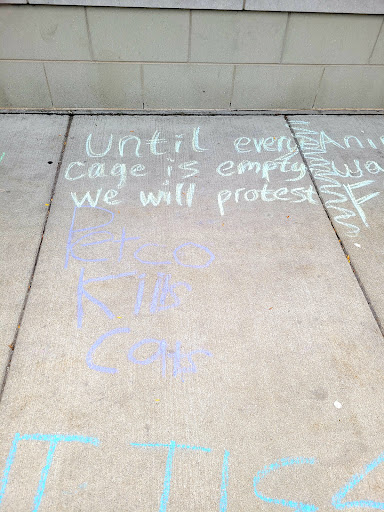 Until every
cage is empty
we will protest
Petco
Kills
Cats
Ani
wa
F
IT IS